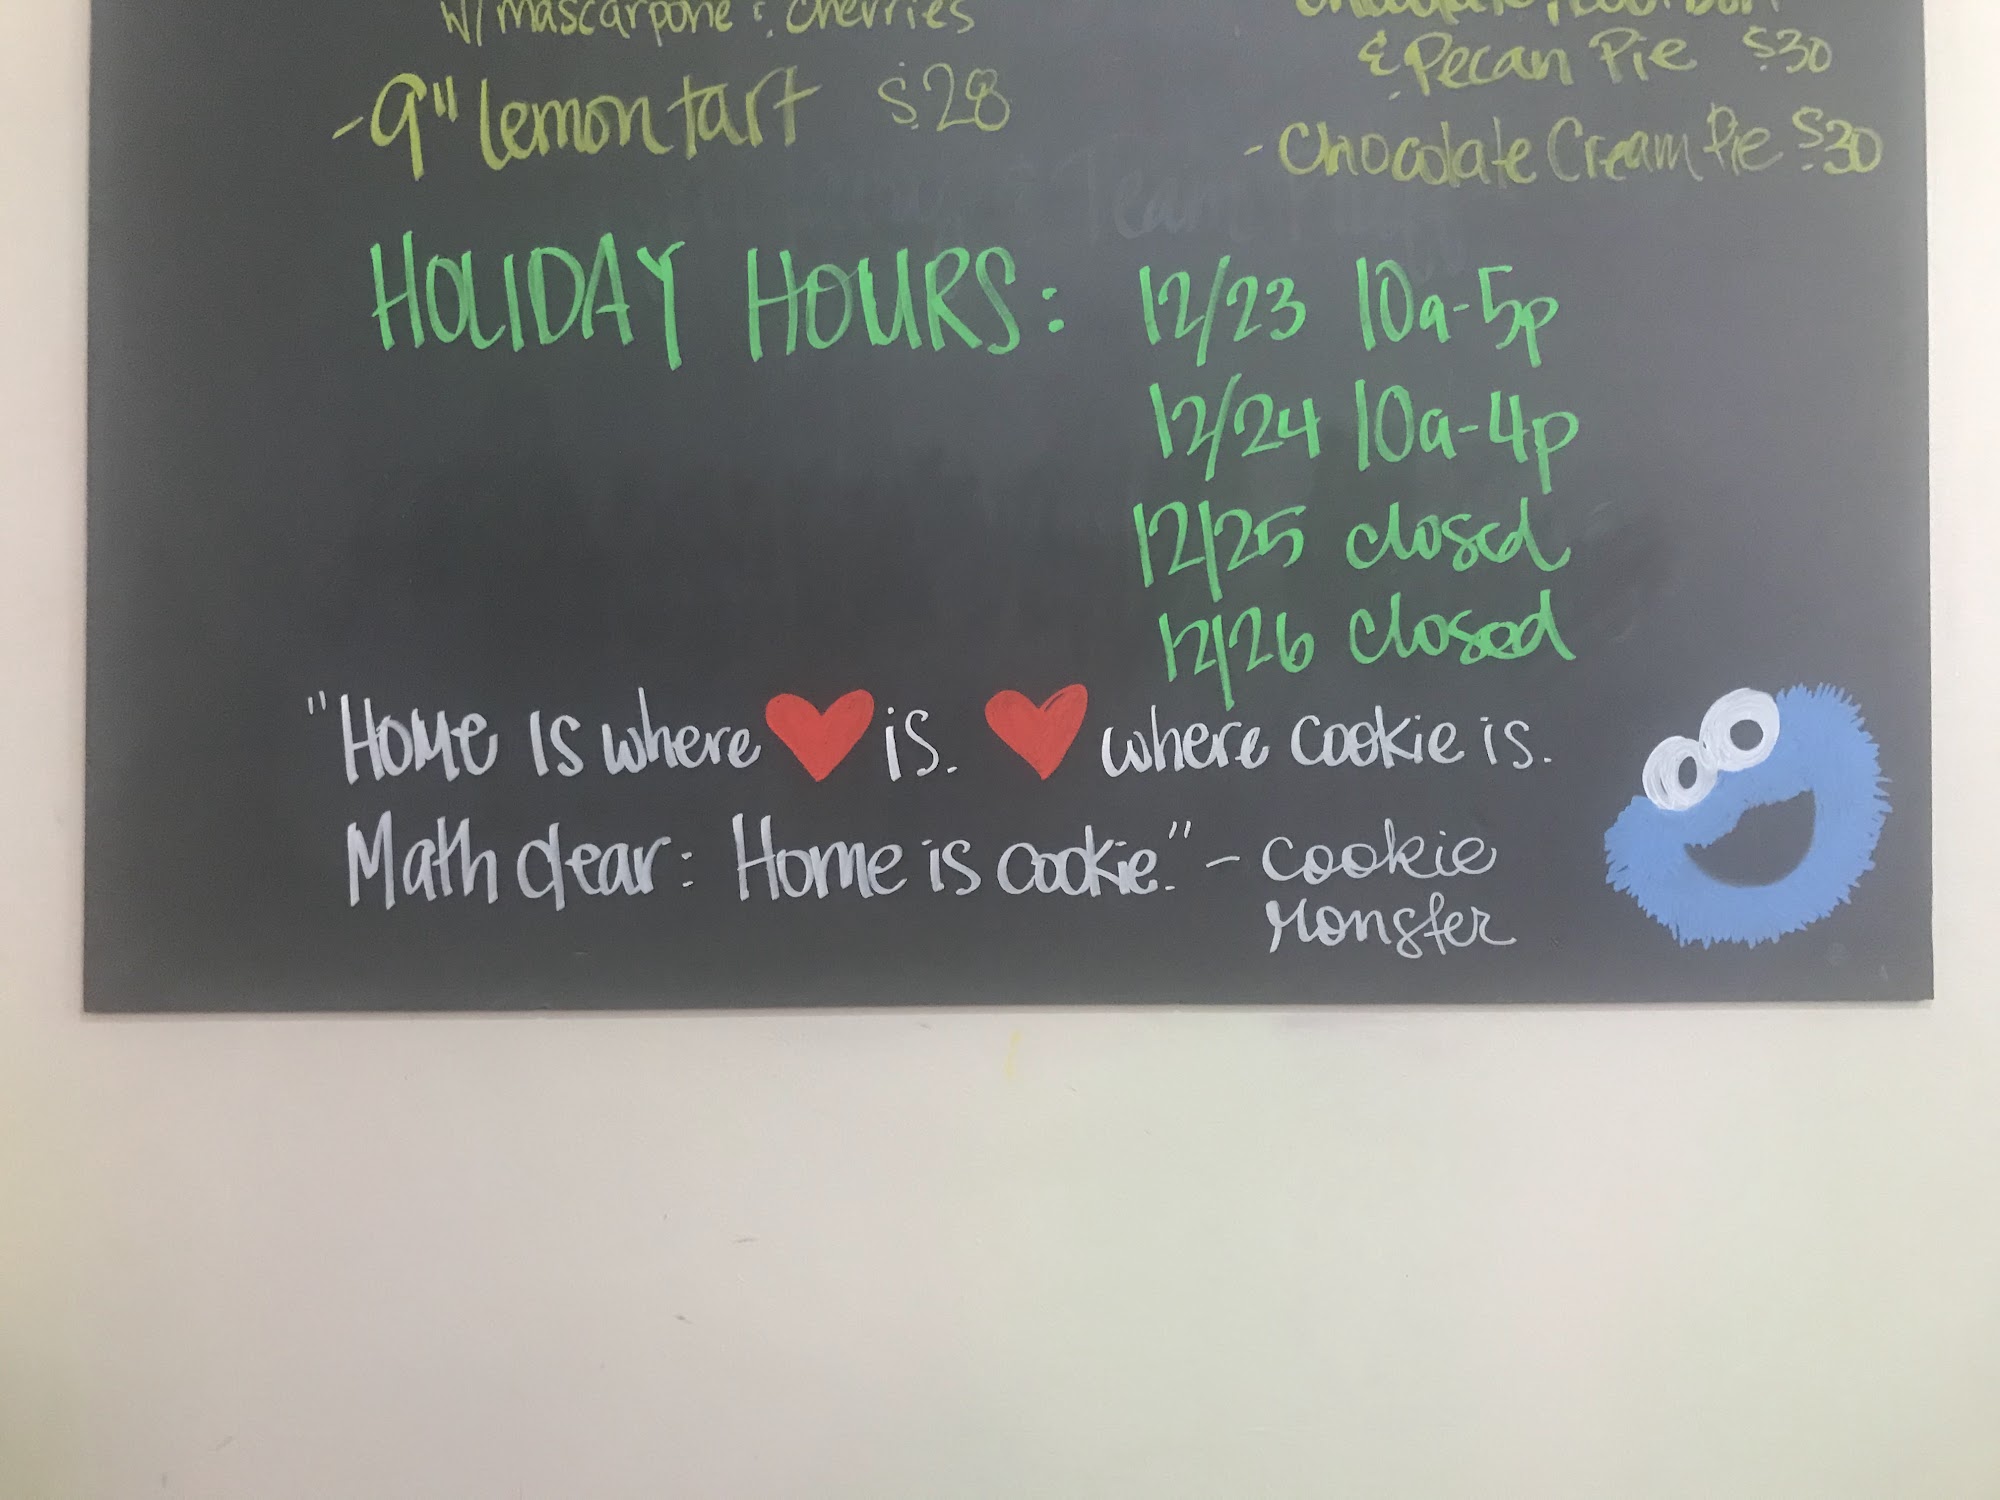 w/ mascarpone & cherries
-9" lemon tart $28
& Pecan Pie $30
- Chocolate Cream Pie $30
HOLIDAY HOURS: 12/23 10a-5p
12/24 10a-4p
12/25 closed
12/26 closed
"Home is where ❤ is. ❤ where cookie is.
Math clear: Home is cookie." - cookie
monster